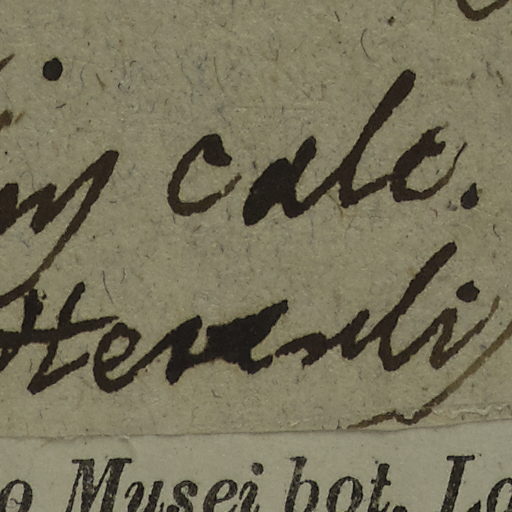 calc.
Herculis
o Musei bot. Lo